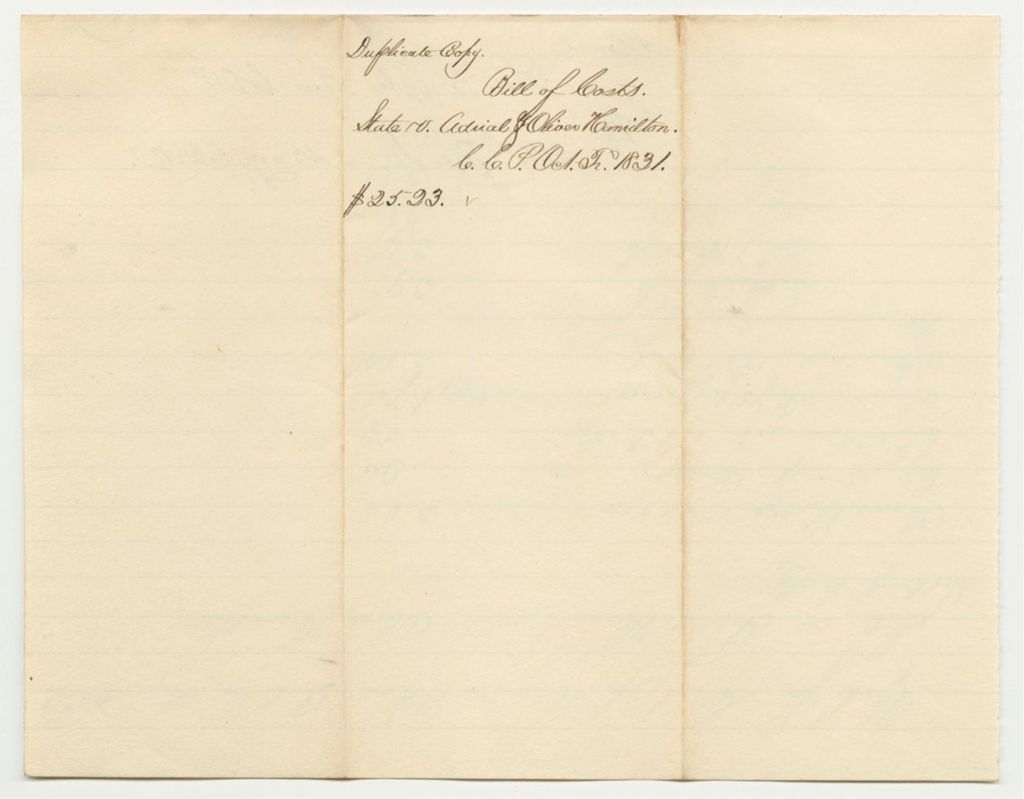 Duplicate Copy.
Bill of Costs.
State vs. Adrial & Oliver Hamilton.
C. C. P. Oct. Tr. 1831.
$25.23.